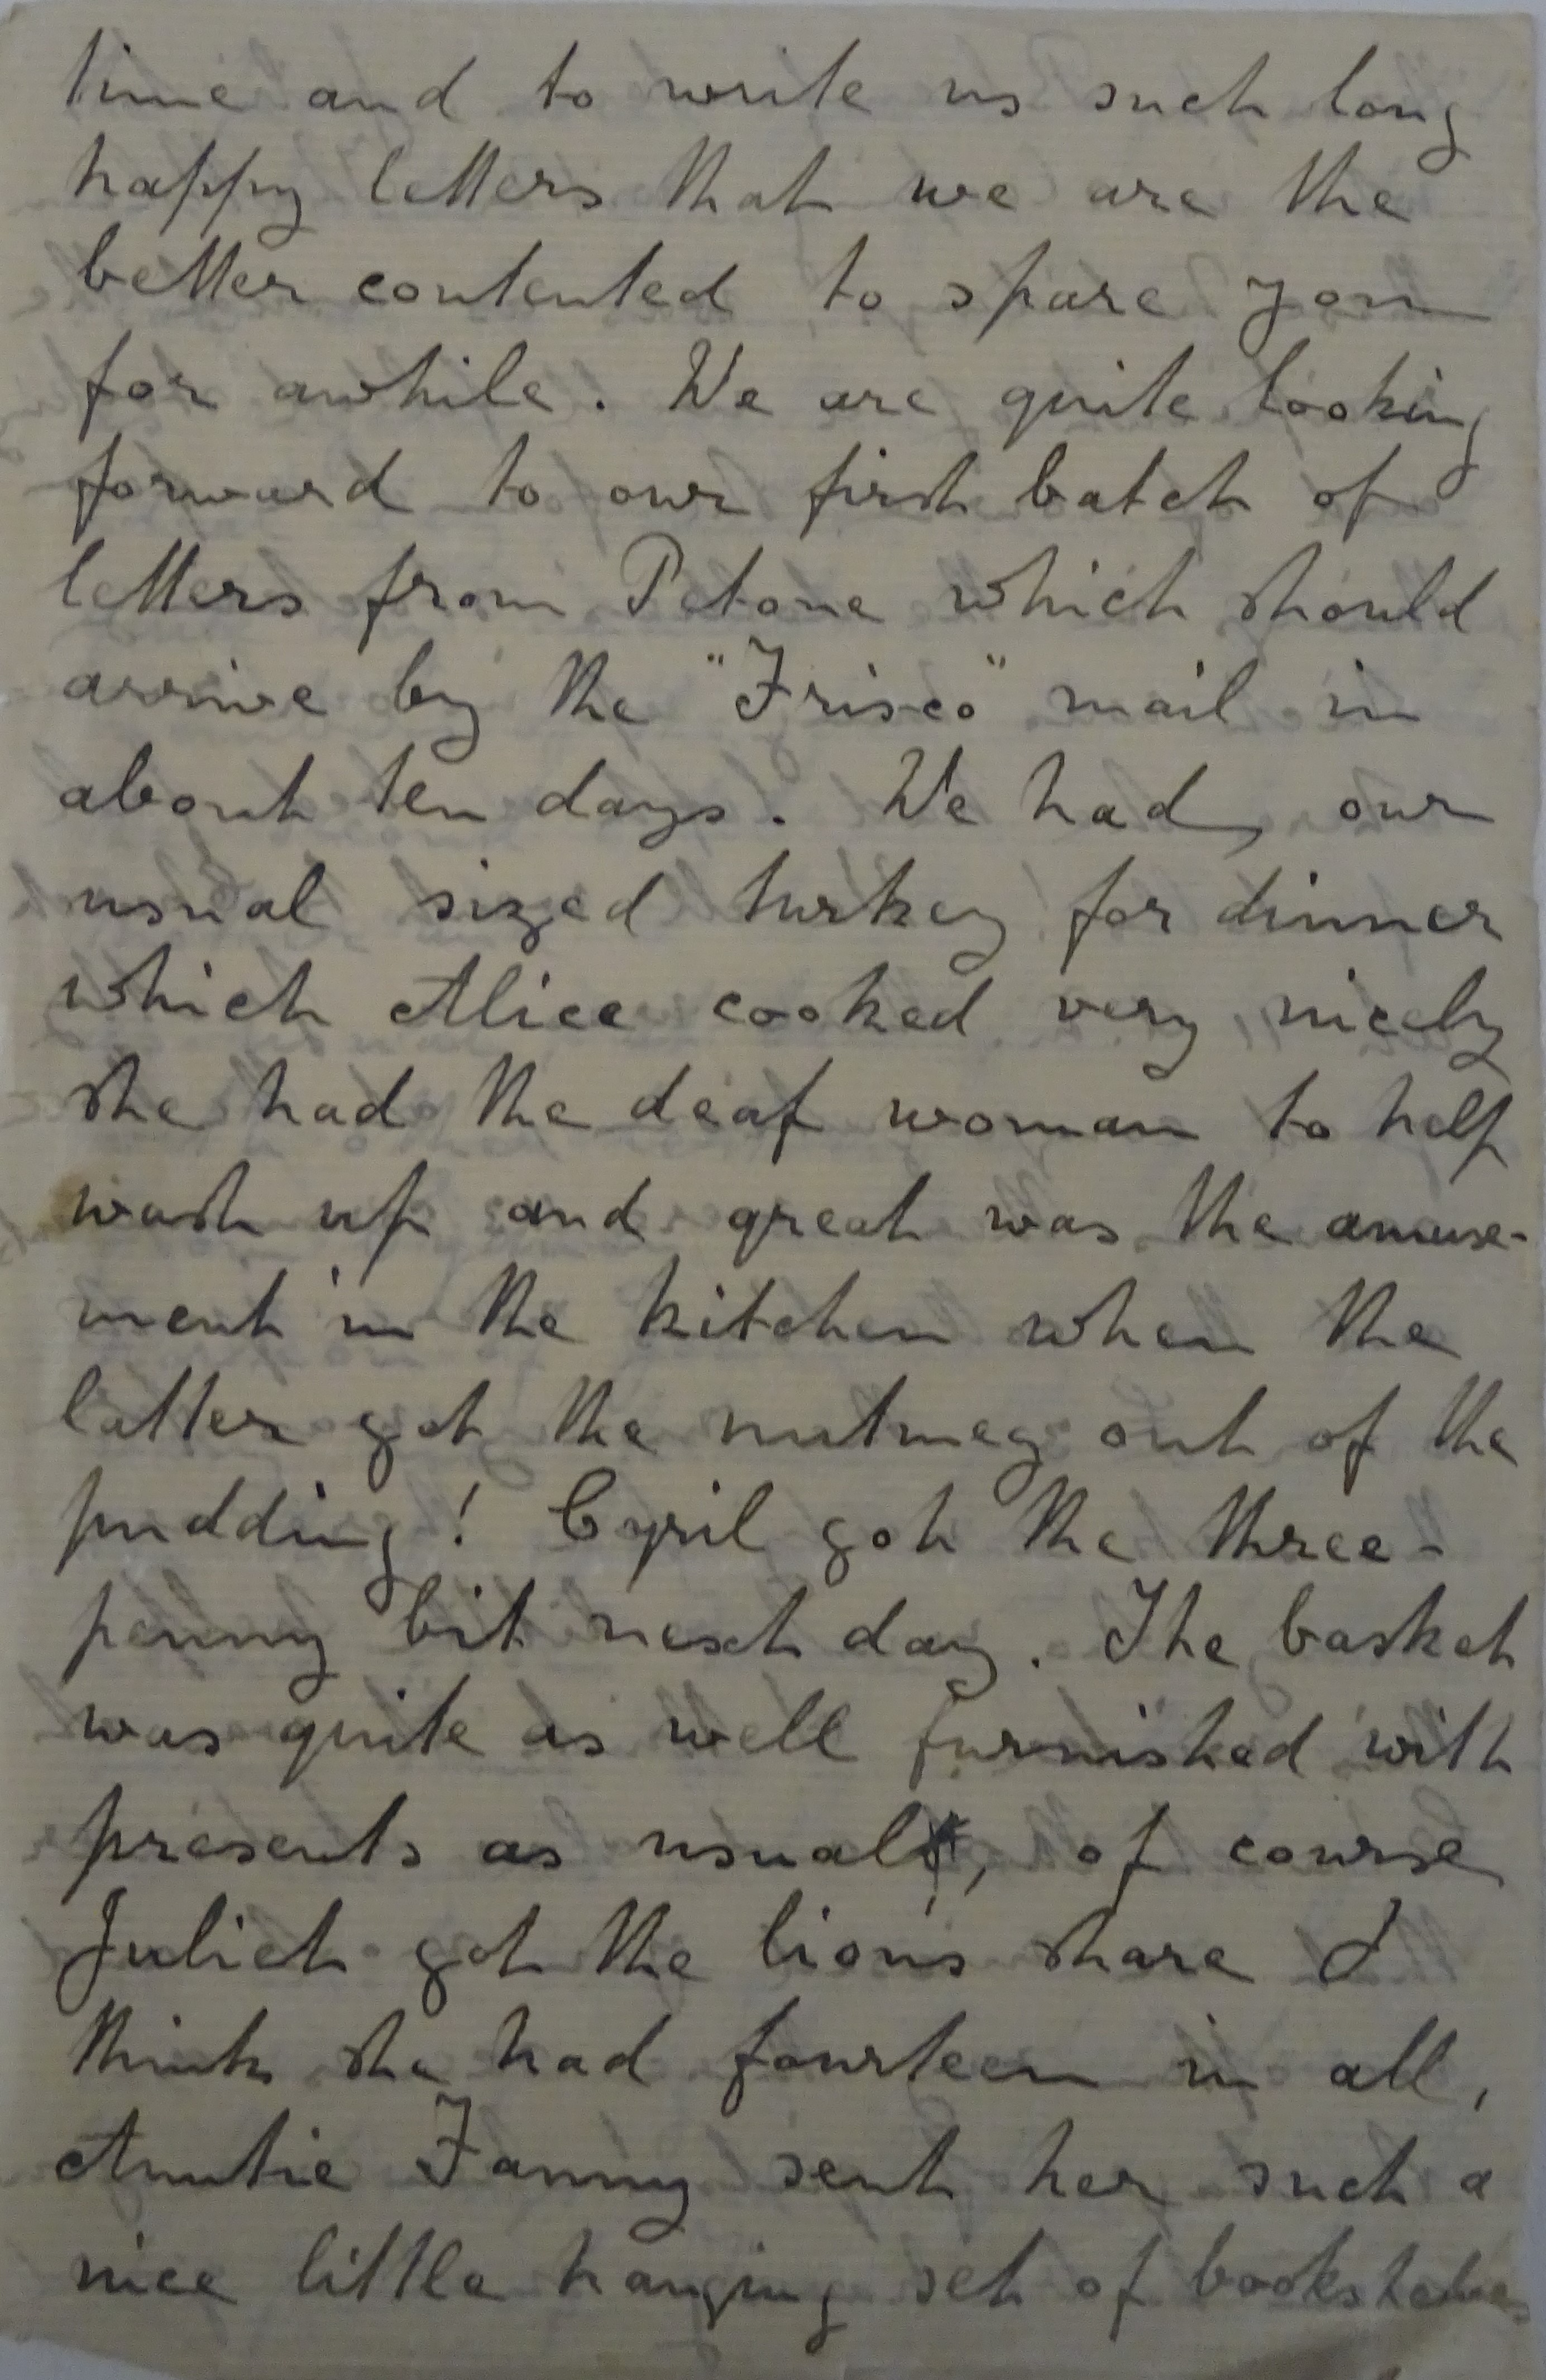 time and to write us such long
happy letters that we are the
better contented to spare you
for awhile. We are quite looking
forward to our first batch of
letters from Petone which should
arrive by the "Frisco" mail in
about ten days. We had, our
usual sized turkey for dinner
which Alice cooked very nicely
she had the deaf woman to help
wash up and great was the amuse-
ment in the kitchen when the
latter got the nutmeg out of the
pudding! Cyril got the three-
penny bit next day. The basket
was quite as well furnished with
presents as usual, of course
Juliet got the lions share I
think she had fourteen in all,
Auntie Fanny sent her such a
nice little hanging set of bookshelves